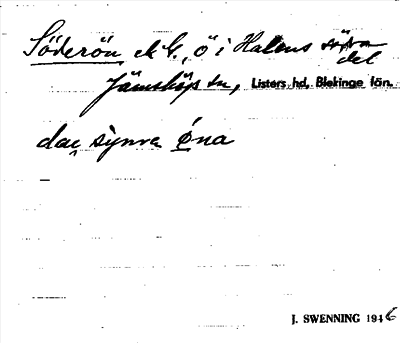 Söderön ek G., ö i Halens södra
del
Jämshöps sn, Listers hd, Blekinge län.
daṇ synra øna
J. SWENNING 1946